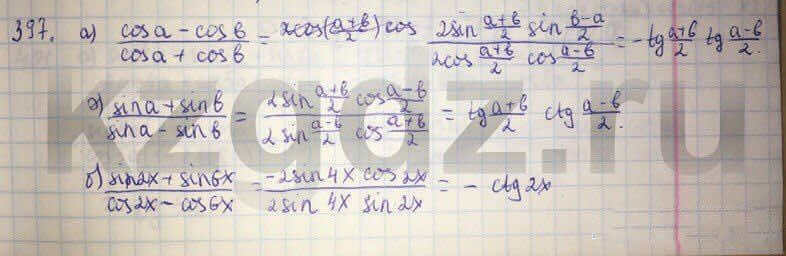 397. а) (cosa - cosв)/(cosa + cosв) = 2cos((a+в)/2) cos (2sin (a+в)/2 sin (в-a)/2)/(2cos (a+в)/2 cos (a-в)/2) = -tg (a+в)/2 tg (a-в)/2.
э) (sina + sinв)/(sina - sinв) = (2sin (a+в)/2 cos (a-в)/2)/(2sin (a-в)/2 cos (a+в)/2) = tg (a+в)/2 ctg (a-в)/2.
б) (sin2x + sin6x)/(cos2x - cos6x) = (-2sin4x cos2x)/(2sin 4x sin 2x) = - ctg 2x
kzgdz.ru